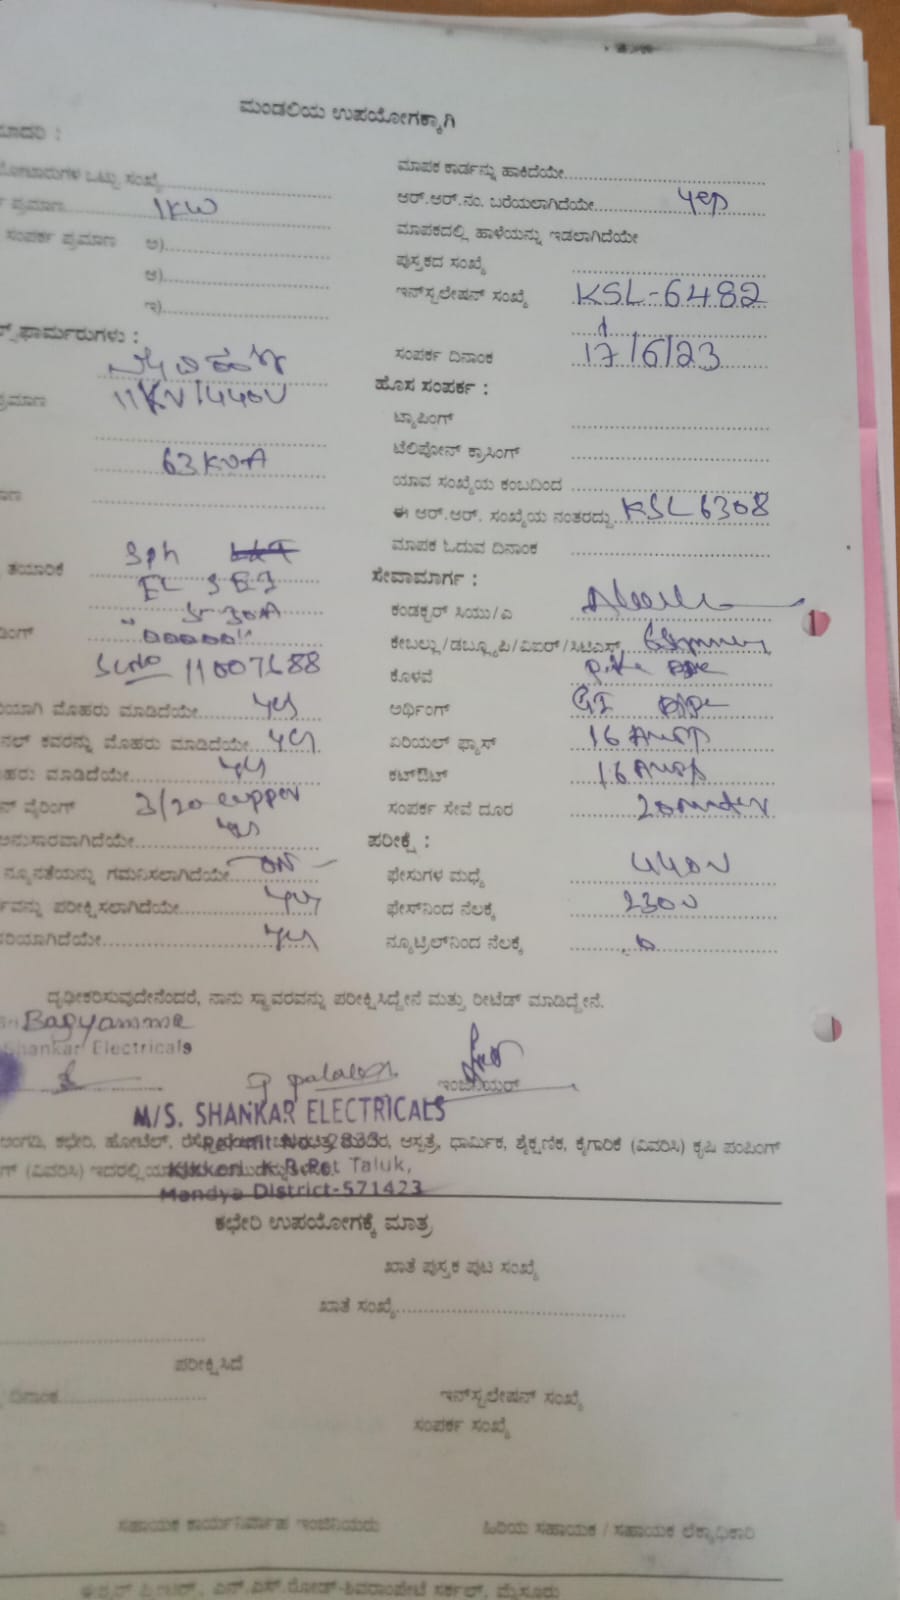 ಮಂಡಲಿಯ ಉಪಯೋಗಕ್ಕಾಗಿ
ಒಟ್ಟು ಸಂಖ್ಯೆ
ಪ್ರಮಾಣ 1KW
ಸಂಪರ್ಕ ಪ್ರಮಾಣ ಅ)
ಆ)
ಇ)
ಫಾರ್ಮರುಗಳು :
11KV/440V
63KVA
ತಯಾರಿಕೆ
5-30A
"00000"
11007688
ಮೊಹರು ಮಾಡಿದೆಯೇ yes
ಕವರನ್ನು ಮೊಹರು ಮಾಡಿದೆಯೇ yes
ಮಾಡಿದೆಯೇ yes
ವೈರಿಂಗ್ 3/20 copper
ಅನುಸಾರವಾಗಿದೆಯೇ yes
ನ್ಯೂನತೆಯನ್ನು ಗಮನಿಸಲಾಗಿದೆಯೇ
ಪರೀಕ್ಷಿಸಲಾಗಿದೆಯೇ yes
yes
ಮಾಪಕ ಕಾರ್ಡನ್ನು ಹಾಕಿದೆಯೇ
ಆರ್.ಆರ್.ನಂ. ಬರೆಯಲಾಗಿದೆಯೇ yes
ಮಾಪಕದಲ್ಲಿ ಹಾಳೆಯನ್ನು ಇಡಲಾಗಿದೆಯೇ
ಪುಸ್ತಕದ ಸಂಖ್ಯೆ
ಇನ್‌ಸ್ಟಲೇಷನ್ ಸಂಖ್ಯೆ KSL-6482
ಸಂಪರ್ಕ ದಿನಾಂಕ 17/6/23
ಹೊಸ ಸಂಪರ್ಕ :
ಟ್ಯಾಪಿಂಗ್
ಟೆಲಿಫೋನ್ ಕ್ರಾಸಿಂಗ್
ಯಾವ ಸಂಖ್ಯೆಯ ಕಂಬದಿಂದ
ಈ ಆರ್.ಆರ್. ಸಂಖ್ಯೆಯ ನಂತರದ್ದು KSL6308
ಮಾಪಕ ಓದುವ ದಿನಾಂಕ
ಸೇವಾಮಾರ್ಗ :
ಕಂಡಕ್ಟರ್ ಸಿಯು/ಎ
ಕೇಬಲ್ಲು/ಡಬ್ಲ್ಯೂಪಿ/ವಿಐಆರ್/ಸಿಟಿಎಸ್
ಕೊಳವೆ
ಅರ್ಥಿಂಗ್ GI pipe
ಏರಿಯಲ್ ಫ್ಯೂಸ್ 16 Amp
ಕಟ್‌ಔಟ್ 16 Amp
ಸಂಪರ್ಕ ಸೇವೆ ದೂರ 20 meter
ಪರೀಕ್ಷೆ :
ಫೇಸುಗಳ ಮಧ್ಯೆ 440V
ಫೇಸ್‌ನಿಂದ ನೆಲಕ್ಕೆ 230V
ನ್ಯೂಟ್ರಲ್‌ನಿಂದ ನೆಲಕ್ಕೆ 0
ದೃಢೀಕರಿಸುವುದೇನೆಂದರೆ, ನಾನು ಸ್ಥಾವರವನ್ನು ಪರೀಕ್ಷಿಸಿದ್ದೇನೆ ಮತ್ತು ರೀಟೆಡ್ ಮಾಡಿದ್ದೇನೆ.
Bagyamma
Shankar Electricals
ಇಂಜಿನಿಯರ್
M/S. SHANKAR ELECTRICALS
Permit No. 2833
ಅಂಗಡಿ, ಕಛೇರಿ, ಹೋಟೆಲ್, ಆಸ್ಪತ್ರೆ, ಧಾರ್ಮಿಕ, ಶೈಕ್ಷಣಿಕ, ಕೈಗಾರಿಕೆ (ವಿವರಿಸಿ) ಕೃಷಿ ಪಂಪಿಂಗ್
(ವಿವರಿಸಿ)
Kikkeri K.R.Pet Taluk,
Mandya District-571423
ಕಛೇರಿ ಉಪಯೋಗಕ್ಕೆ ಮಾತ್ರ
ಖಾತೆ ಪುಸ್ತಕ ಪುಟ ಸಂಖ್ಯೆ
ಖಾತೆ ಸಂಖ್ಯೆ
ಪರೀಕ್ಷಿಸಿದೆ
ದಿನಾಂಕ
ಇನ್‌ಸ್ಟಲೇಷನ್ ಸಂಖ್ಯೆ
ಸಂಪರ್ಕ ಸಂಖ್ಯೆ
ಸಹಾಯಕ ಕಾರ್ಯನಿರ್ವಾಹ ಇಂಜಿನಿಯರು
ಹಿರಿಯ ಸಹಾಯಕ / ಸಹಾಯಕ ಲೆಕ್ಕಾಧಿಕಾರಿ
ಎನ್.ಎಸ್.ರೋಡ್-ಶಿವರಾಂಪೇಟೆ ಸರ್ಕಲ್, ಮೈಸೂರು